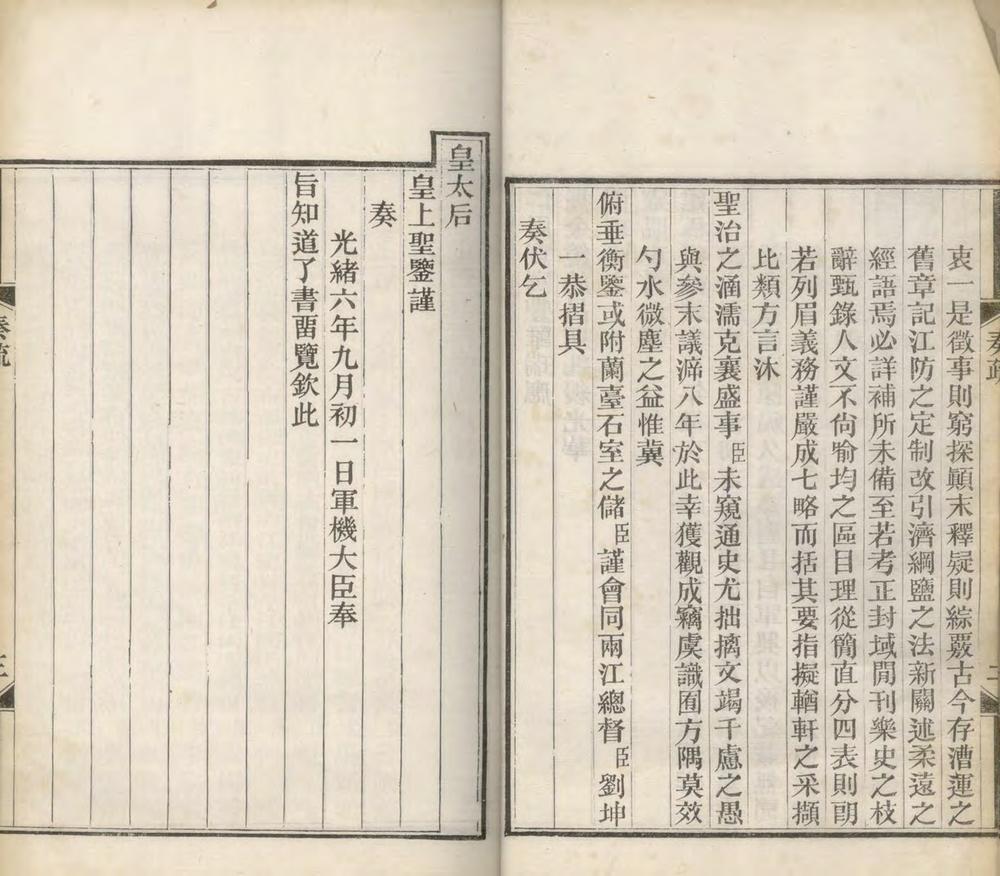 衷一是徵事則窮探顚末釋疑則綜覈古今存漕運之
舊章記江防之定制改引濟綱鹽之法新關述柔遠之
經語焉必詳補所未備至若考正封域閒刊樂史之枝
辭甄錄人文不尙喻均之區目理從簡直分四表則朙
若列眉義務謹嚴成七略而括其要指擬輶軒之采擷
比類方言沐
聖治之涵濡克襄盛事臣未窺通史尤拙摛文竭千慮之愚
與參末議滯八年於此幸獲觀成竊虞識囿方隅莫效
勺水微塵之益惟冀
俯垂衡鑒或附蘭臺石室之儲臣謹會同兩江總督臣劉坤
一恭摺具
奏伏乞
奏疏
二
皇太后
皇上聖鑒謹
奏
光緒六年九月初一日軍機大臣奉
旨知道了書畱覽欽此
奏疏
三